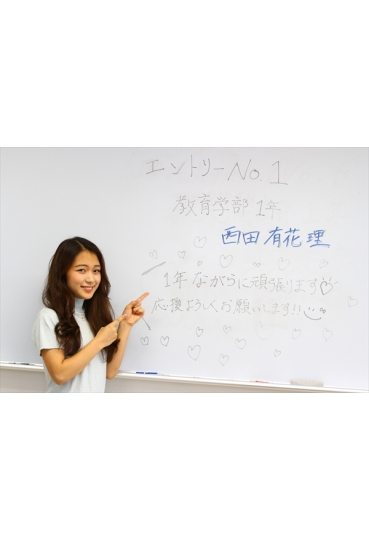 エントリーNo.1
教育学部 1年
西田 有花理
1年ながらに頑張ります♡
応援よろしくお願いします!!